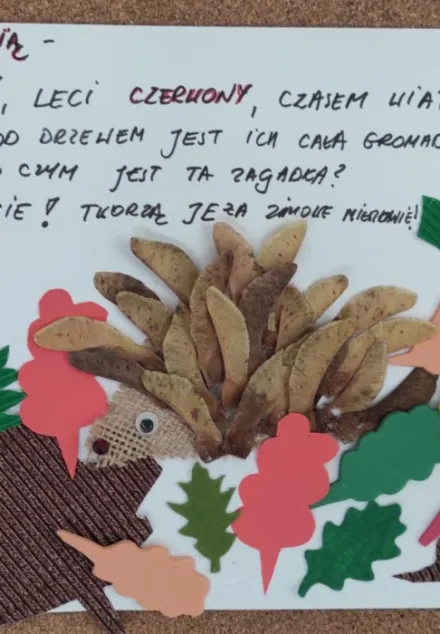 LECI CZERWONY, CZASEM WIAT
OD DRZEWEM JEST ICH CAŁA GROMAD
CZYM JEST TA ZAGADKA?
CIE! TWORZĄ JEŻA ZIMOWE